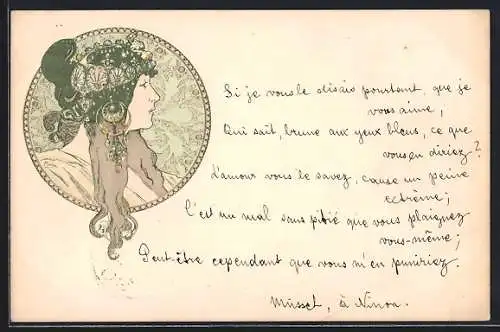 Si je vous le disais pourtant, que je
vous aime,
Qui sait, brune aux yeux bleus, ce que
vous en diriez?
L'amour vous le savez, cause un peine
extrême;
C'est un mal sans pitié que vous plaignez
vous-même;
Peut-être cependant que vous m'en puniriez.
Musset, à Ninon.